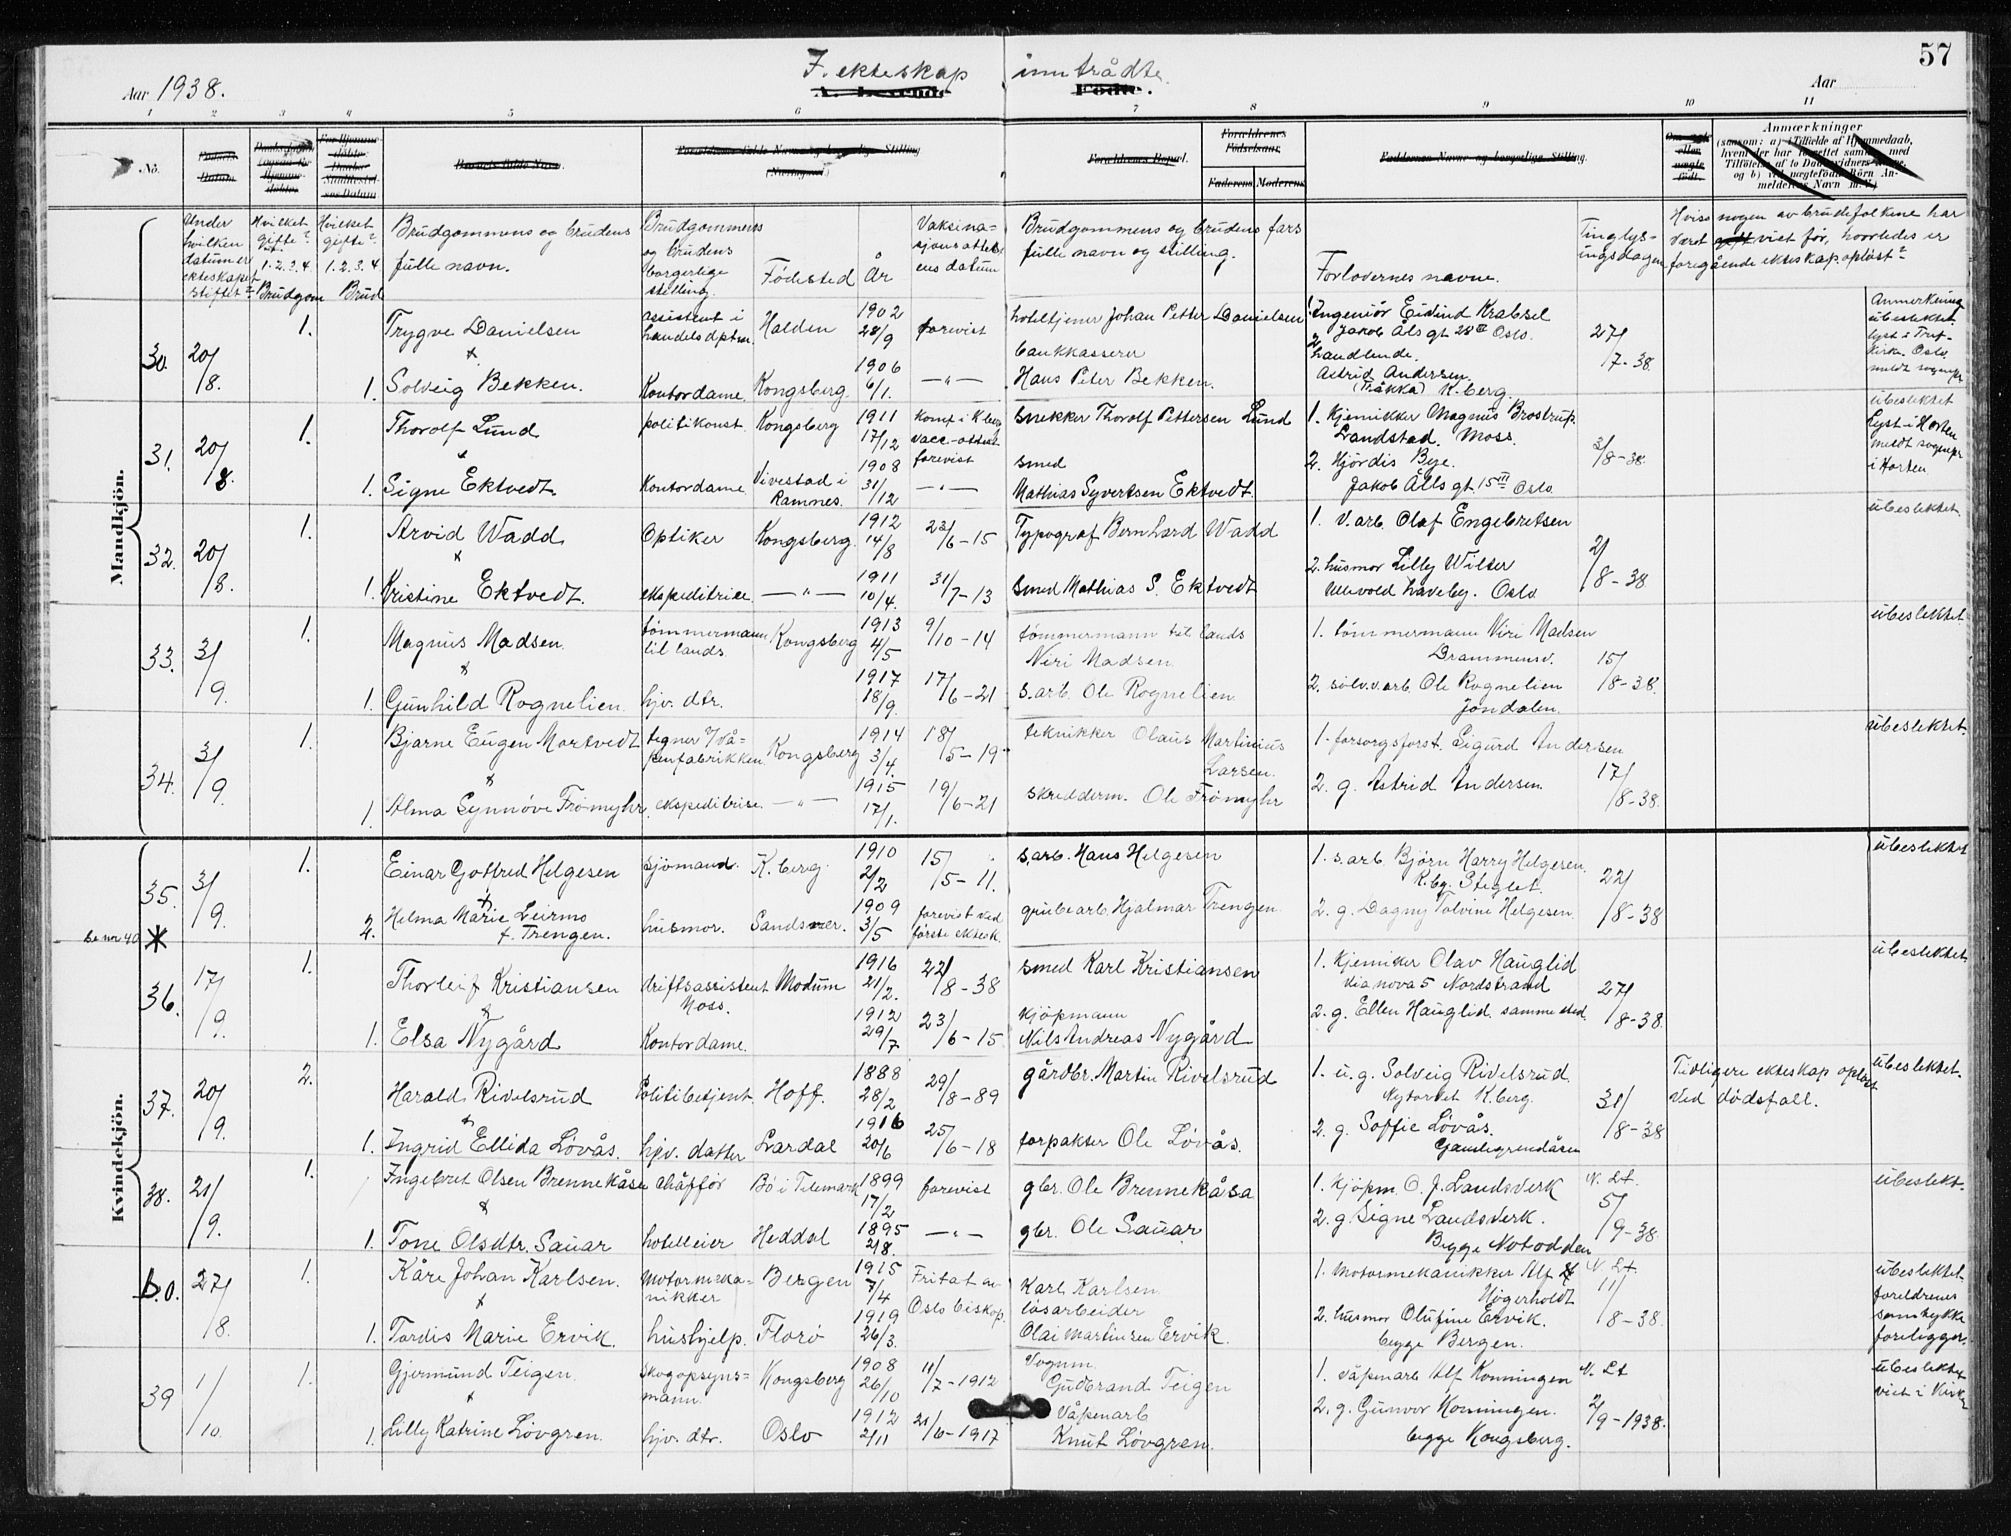 57
I ekteskap inntrådte.
Aar 1938.
A. Levende Födte.
Aar
1 2 3 4 5 6 7 8 9 10 11
No.
Forældrenes Födselsaar.
Faderens Moderens
Anmærkninger
(saasom: a) i Tilfælde af Hjemmedaab,
hvem der har forrettet samme, med
Tilföielse af to Daabsvidners Navne,
og b) ved uægtefödte Börn An-
melderens Navn m. V.)
Under hvilken datum er ekteskapet stiftet?
Hvilket gifte? 1. 2. 3. 4 Brudgom
Hvilket gifte? 1. 2. 3. 4 Brud
Brudgommens og brudens fulle navn.
Brudgommens og brudens borgerlige stilling.
Födested
År
Vaksinasjonsattestens datum
Brudgommens og brudens fars fulle navn og stilling.
Forlovernes navne.
Tinglysingsdagen
Hviss nogen av brudefolkene har været gift viet för, hvorledes er foregående ekteskap oplöst?
Anmerkning
Mandkjön.
30. 20/8. 1. Trygve Danielsen assistent i handelsdptm. Halden 1902 28/9 forevist hoteltjener Johan Petter Danielsen 1. Ingeniör Eivind Krabsel
Jakob Åls gt 28 III Oslo. 27/7-38. ubeslektet. lyst i Tref. kirke. Oslo. meldt sognepr
&
1. Solveig Bekken. Kontordame. Kongsberg. 1906 6/1. —"— bankkasserer Hans Peter Bekken. 2. handlende. Astrid Andersen. (Tråkka) K.berg.
31. 20/8. 1. Thorolf Lund politikonst. Kongsberg 1911 17/12 Komp i K berg vacc-attest forevist snekker Thorolf Pettersen Lund 1. Kjemikker Magnus Brostrup Landstad. Moss. 3/8-38. ubeslektet Lyst i Horten meldt sognepr i Horten.
&
1. Signe Ektvedt Kontordame Vivestad i Ramnes. 1908 31/12 —"— smed Mathias Syvertsen Ektvedt 2. Hjördis Bye. Jakob Ålls gt. 15 III Oslo
32. 20/8. 1. Arvid Wadd Optiker Kongsberg. 1912 14/8 23/6-15 Typograf Bernhard Wadd 1. V.arb. Olaf Engebretsen 2/8-38 ubeslektet.
&
1. Kristine Ektvedt. ekspeditrice. —"— 1911 10/4. 31/7-13 smed Mathias S. Ektvedt 2. husmor Lilly Wilter Ullevold haveby. Oslo
33. 3/9. 1. Magnus Madsen. tömmermann til lands. Kongsberg 1913 4/5 9/10-14 tömmermann til lands Niri Madsen. 1. tömmermann Niri Madsen Drammensv. 15/8-38. ubeslektet.
&
1. Gunhild Rognelien. hjv. dtr. 1917 18/9. 17/6-21 s.arb. Ole Rognelien 2. sölvv.arb. Ole Rognelien Jondalen.
34. 3/9. 1. Bjarne Eugen Martvedt tegner v/Våpenfabrikken Kongsberg 1914 3/4. 18/5-19 teknikker Olaus Martinius Larsen. 1. forsorgsforst. Sigurd Andersen 17/8-38. ubeslektet.
&
1. Alma Synnöve Frömyhr. ekspeditrise —"— 1915 17/1. 19/6-21 skredderm. Ole Frömyhr 2. g. Astrid Andersen.
Kvindekjön.
35. 3/9. 1. Einar Gotfred Helgesen sjömand. K.berg. 1910 2/2 15/5-11. s.arb. Hans Helgesen 1. s.arb. Björn Harry Helgesen. K.bg. Steglet. 22/8-38 ubeslektet
&
Se nr 40 * 2. Helma Marie Leirmo f. Trengen. husmor. Sandsvær. 1909 3/5 forevist ved förste ektesk. grubearb. Hjalmar Trengen. 2. g. Dagny Tolvine Helgesen.
36. 17/9. 1. Thorleif Kristiansen driftsassistent Moss. Modum 1916 21/2. 22/8-38 smed Karl Kristiansen 1. Kjemiker Olav Hauglid Vianova 5 Nordstrand 27/8-38. ubeslektet.
&
1. Elsa Nygård Kontordame. 1912 29/7 23/6-15 kjöpmann Nils Andreas Nygård 2. g. Ellen Hauglid. samme sted.
37. 20/9. 2. Harald Rivelsrud Politibetjent Hoff. 1888 28/2 29/8-89 gårdbr. Martin Rivelsrud 1. u. g. Solveig Rivelsrud. Nytorvet K.berg. 31/8-38 Tidligere ekteskap oplöst ved dödsfall. ubeslektet.
&
1. Ingrid Ellida Lövås. hjv. datter Lardal 1916 20/6 25/6-18 forpakter Ole Lövås. 2. g. Soffie Lövås. Gamlegrendåsen
38. 21/9. 1. Ingebret Olsen Brennekåsa chåfför Bö i Telemark 1899 17/2 forevist gbr. Ole Brennekåsa 1. Kjöpm. O. J. Landsverk N. Lt. 5/9-38. ubeslekt.
&
1. Tone Olsdtr. Sauar hotelleier Heddal 1895 2/8. —"— gbr. Ole Sauar 2. g. Signe Landsverk. Begge Notodden
b.o. 27/8. 1. Kåre Johan Karlsen. Motormekanikker Bergen 1915 7/4 Fritat av Oslo biskop. Karl Karlsen. 1. Motormekanikker Alf Högerholdt N. Lt 11/8-38. ubeslektet. foreldrenes samtykke foreligger.
&
1. Tordis Marie Ervik. hushjelp. Florö 1919 26/3. lösarbeider Olai Martinsen Ervik. 2. husmor Olufine Ervik. begge Bergen.
39 1/10. 1. Gjermund Teigen. Skogopsynsmann. Kongsberg 1908 26/10 11/7-1912 Vognm. Gudbrand Teigen 1. våpenarb Alf Konningen N. Lt 2/9-1938. ubeslektet viet i Kirke
&
1. Lilly Katrine Lövgren. hjv. dtr. Oslo 1912 2/11 21/6-1917 Våpenarb Knut Lövgren. 2. g. Gunvor Konningen. begge Kongsberg.